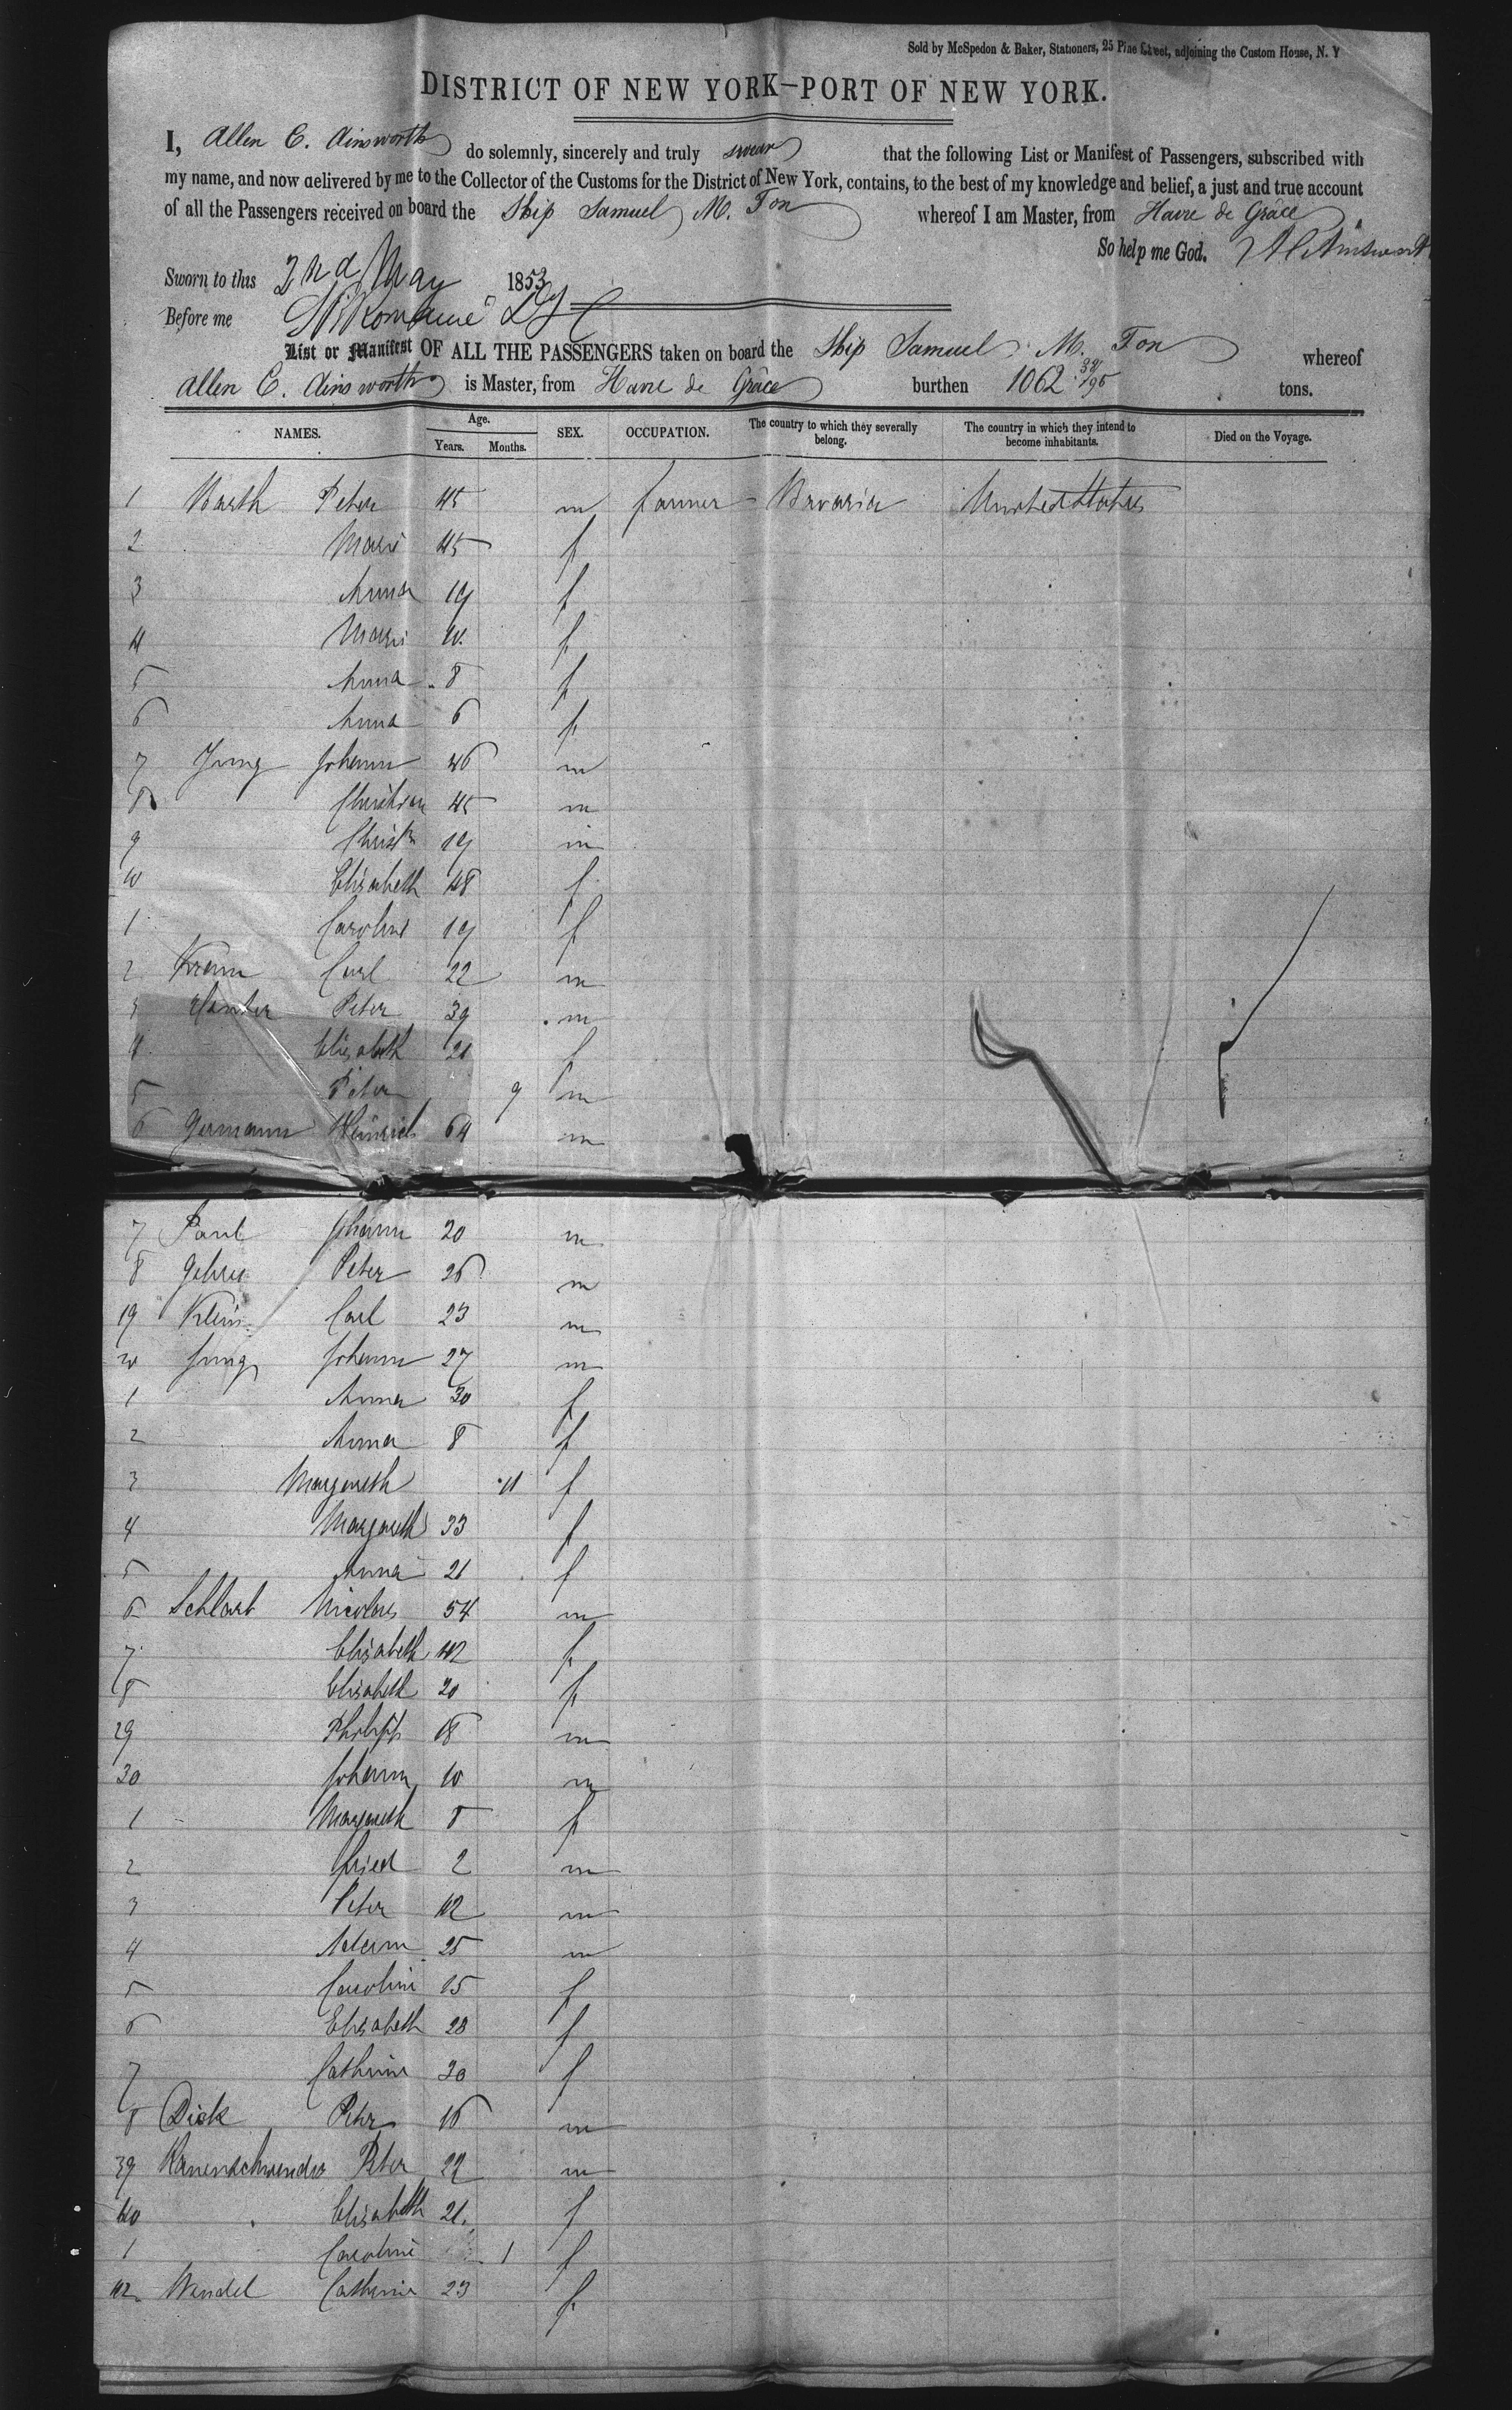 Sold by McSpedon & Baker, Stationers, 25 Pine Street, adjoining the Custom House, N. Y
DISTRICT OF NEW YORK—PORT OF NEW YORK.
I, Allen C. Ainsworth do solemnly, sincerely and truly swear that the following List or Manifest of Passengers, subscribed with
my name, and now delivered by me to the Collector of the Customs for the District of New York, contains, to the best of my knowledge and belief, a just and true account
of all the Passengers received on board the Ship Samuel M. Fox whereof I am Master, from Havre de Grâce
So help me God. A C Ainsworth
Sworn to this 2nd May 1853
Before me
List or Manifest OF ALL THE PASSENGERS taken on board the Ship Samuel M. Fox whereof
Allen C. Ainsworth is Master, from Havre de Grâce burthen 1062 38/95 tons.
NAMES. Age. Years. Months. SEX. OCCUPATION. The country to which they severally belong. The country in which they intend to become inhabitants. Died on the Voyage.
1 Barth Peter 45 m farmer Bavaria United States
2 Marie 45 f
3 Anna 19 f
4 Marie 10 f
5 Anna 8 f
6 Anna 6 f
7 Jung Johann 46 m
8 Christian 45 m
9 Christn 19 m
10 Elisabeth 48 f
1 Caroline 19 f
2 Kramm Carl 22 m
3 Peter 39 m
4 Elisabeth 21 f
5 Peter 9 m
6 Germann Heinrich 64 m
7 Paul Johann 20 m
8 Gehres Peter 26 m
19 Klein Carl 23 m
20 Jung Johann 27 m
1 Anna 30 f
2 Anna 8 f
3 Margareth 11 f
4 Margareth 33 f
5 Anna 21 f
6 Schlarb Nicolaus 54 m
7 Elisabeth 42 f
8 Elisabeth 20 f
29 Philipp 18 m
30 Johann 10 m
1 Margareth 8 f
2 fried 2 m
3 Peter 42 m
4 Adam 25 m
5 Caroline 15 f
6 Elisabeth 28 f
7 Cathrine 30 f
8 Dick Peter 16 m
39 Peter 22 m
40 Elisabeth 21 f
1 Caroline 1 f
42 Wendel Catharine 23 f